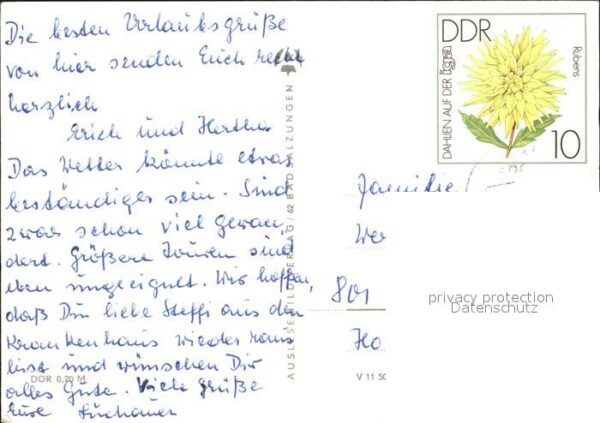 Die besten Urlaubsgrüße
von hier senden Euch recht
herzlich
Erich und Hertha
Das Wetter könnte etwas
beständiger sein. Sind
zwar schon viel gewan,
dert. Größere Touren sind
eben ungeeignet. Wir hoffen,
daß Du liebe Steffi aus dem
Krankenhaus wieder raus
bist und wünschen Dir
alles Gute. Viele Grüße
Eure
DDR 0,20 M
AUSLESE-BILDER-VERLAG / 62 BAD SALZUNGEN
DDR
DAHLIEN AUF DER
Rubens
10
Familie
801
V 11 50
privacy protection
Datenschutz